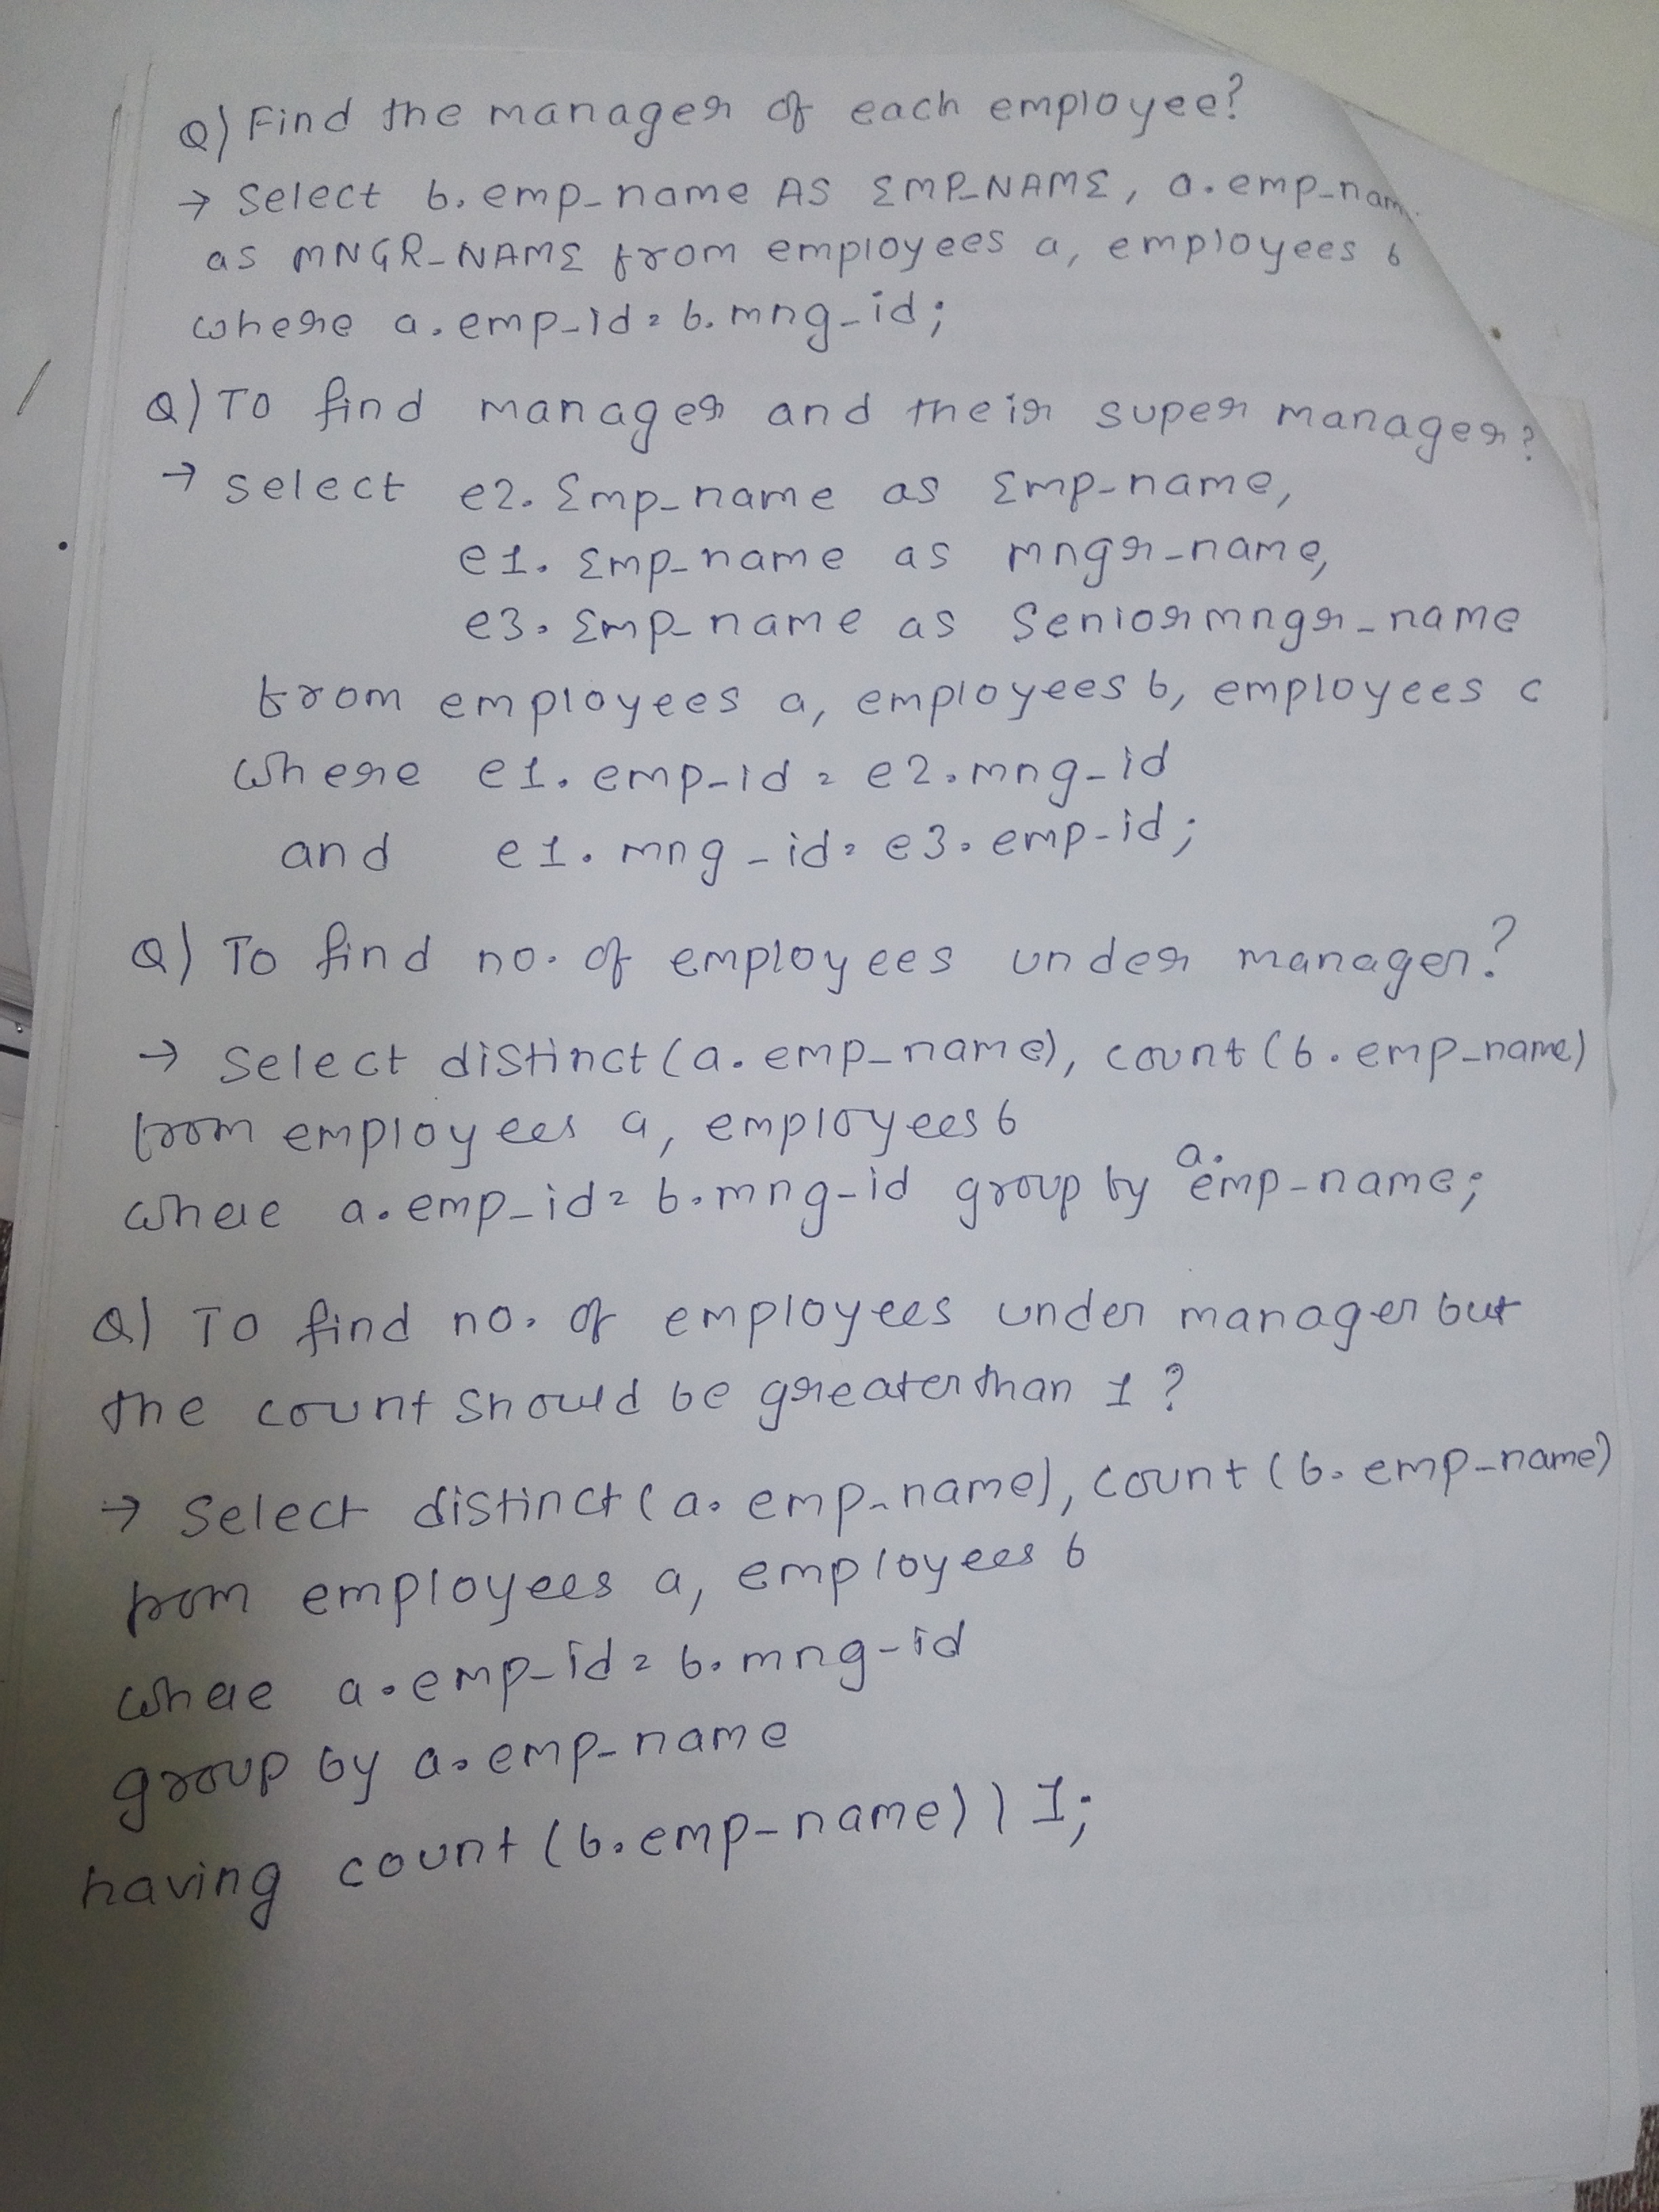 Q) Find the manager of each employee?
→ Select b.emp_name AS EMP_NAME, a.emp_nam
as MNGR_NAME from employees a, employees b
where a.emp_id = b.mng_id;
Q) To find manager and their super manager?
→ Select e2.Emp_name as Emp_name,
e1.Emp_name as mngr_name,
e3.Emp_name as Seniormngr_name
from employees a, employees b, employees c
where e1.emp_id = e2.mng_id
and e1.mng_id = e3.emp_id;
Q) To find no. of employees under manager?
→ Select distinct(a.emp_name), count(b.emp_name)
from employees a, employees b
where a.emp_id = b.mng_id group by a.emp_name;
Q) To find no. of employees under manager but
the count should be greater than 1?
→ Select distinct(a.emp_name), count(b.emp_name)
from employees a, employees b
where a.emp_id = b.mng_id
group by a.emp_name
having count(b.emp_name)) 1;